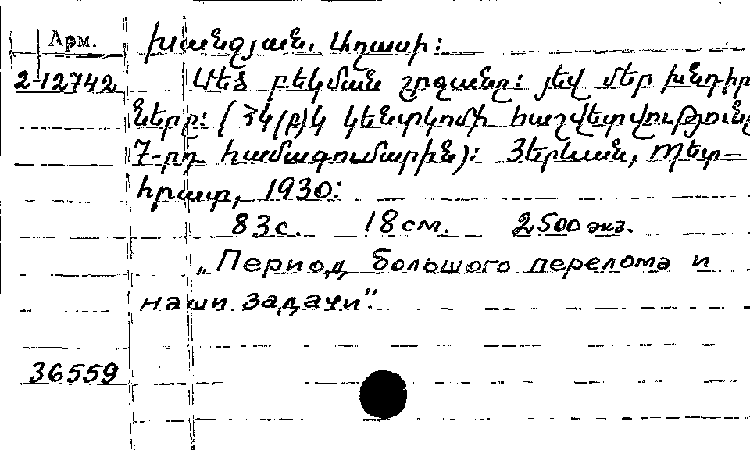 Арм.
Խանջյան. Աղասի:
2-12742 Մեծ բեկման շրջանը: յեվ մեր խնդիր
ները: (ՀԿ(բ)Կ կենտկոմի հաշվետվությունը
7-րդ համագումարին): Յերևան, Պետ-
հրատ, 1930:
83 с. 18 см. 2500 экз.
„Период большого перелома и
наши задачи".
36559